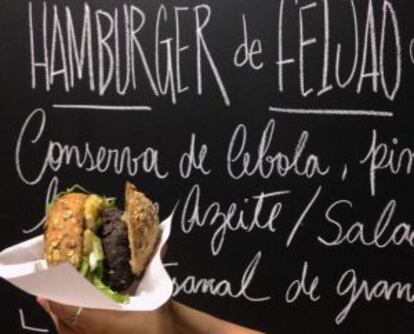 HAMBURGER de FEIJÃO
Conserva de Cebola,
Azeite / Salad
sanal de gran